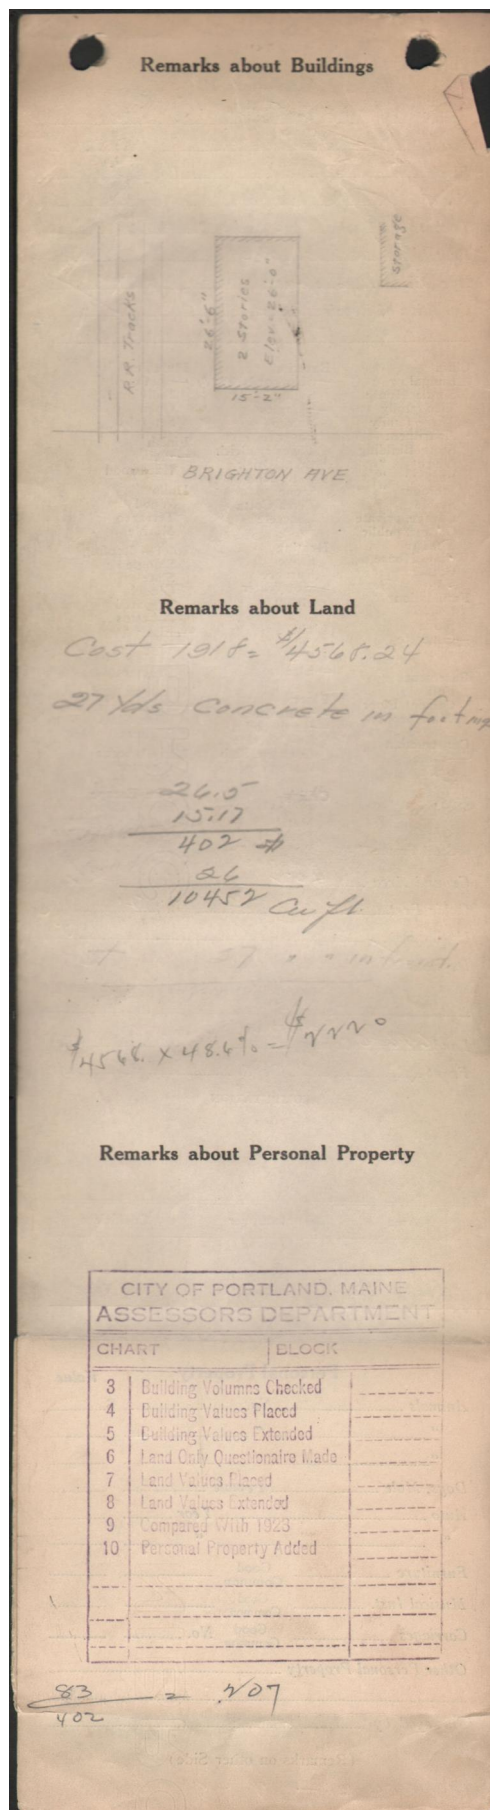 Remarks about Buildings
Storage
R.R. Tracks
26'-6"
2 Stories
Elev. 26'-0"
15'-2"
BRIGHTON AVE
Remarks about Land
Cost 1918 = $4568.24
27 Yds Concrete in footing
26.5
15.17
402 #
26
10452 Cu ft.
37 " "
$4568. x 48.6% = $2220
Remarks about Personal Property
CITY OF PORTLAND, MAINE
ASSESSORS DEPARTMENT
CHART BLOCK
3 Building Volumns Checked
4 Building Values Placed
5 Building Values Extended
6 Land Only Questionaire Made
7 Land Values Placed
8 Land Values Extended
9 Compared With 1923
10 Personal Property Added
83
402
= .207